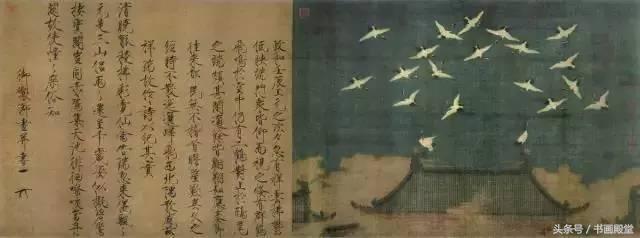 政和壬辰上元之次夕忽有祥雲拂鬱
低映端門衆皆仰而視之倏有群鶴
飛鳴於空中仍有二鶴對止於鴟尾
之端頗甚閑適餘皆翱翔如應奏節
往來都民無不稽首瞻望歎異久之
經時不散迤邐歸飛西北隅散感茲
祥瑞故作詩以紀其實
清曉觚稜拂彩霓仙禽告瑞忽來儀飄飄
元是三山侶兩兩還呈千歲姿似擬碧鸞
棲寶閣豈同赤鴈集天池徘徊嘹唳當丹
闕故使憧憧庶俗知
御製御畫并書
头条号 / 书画殿堂